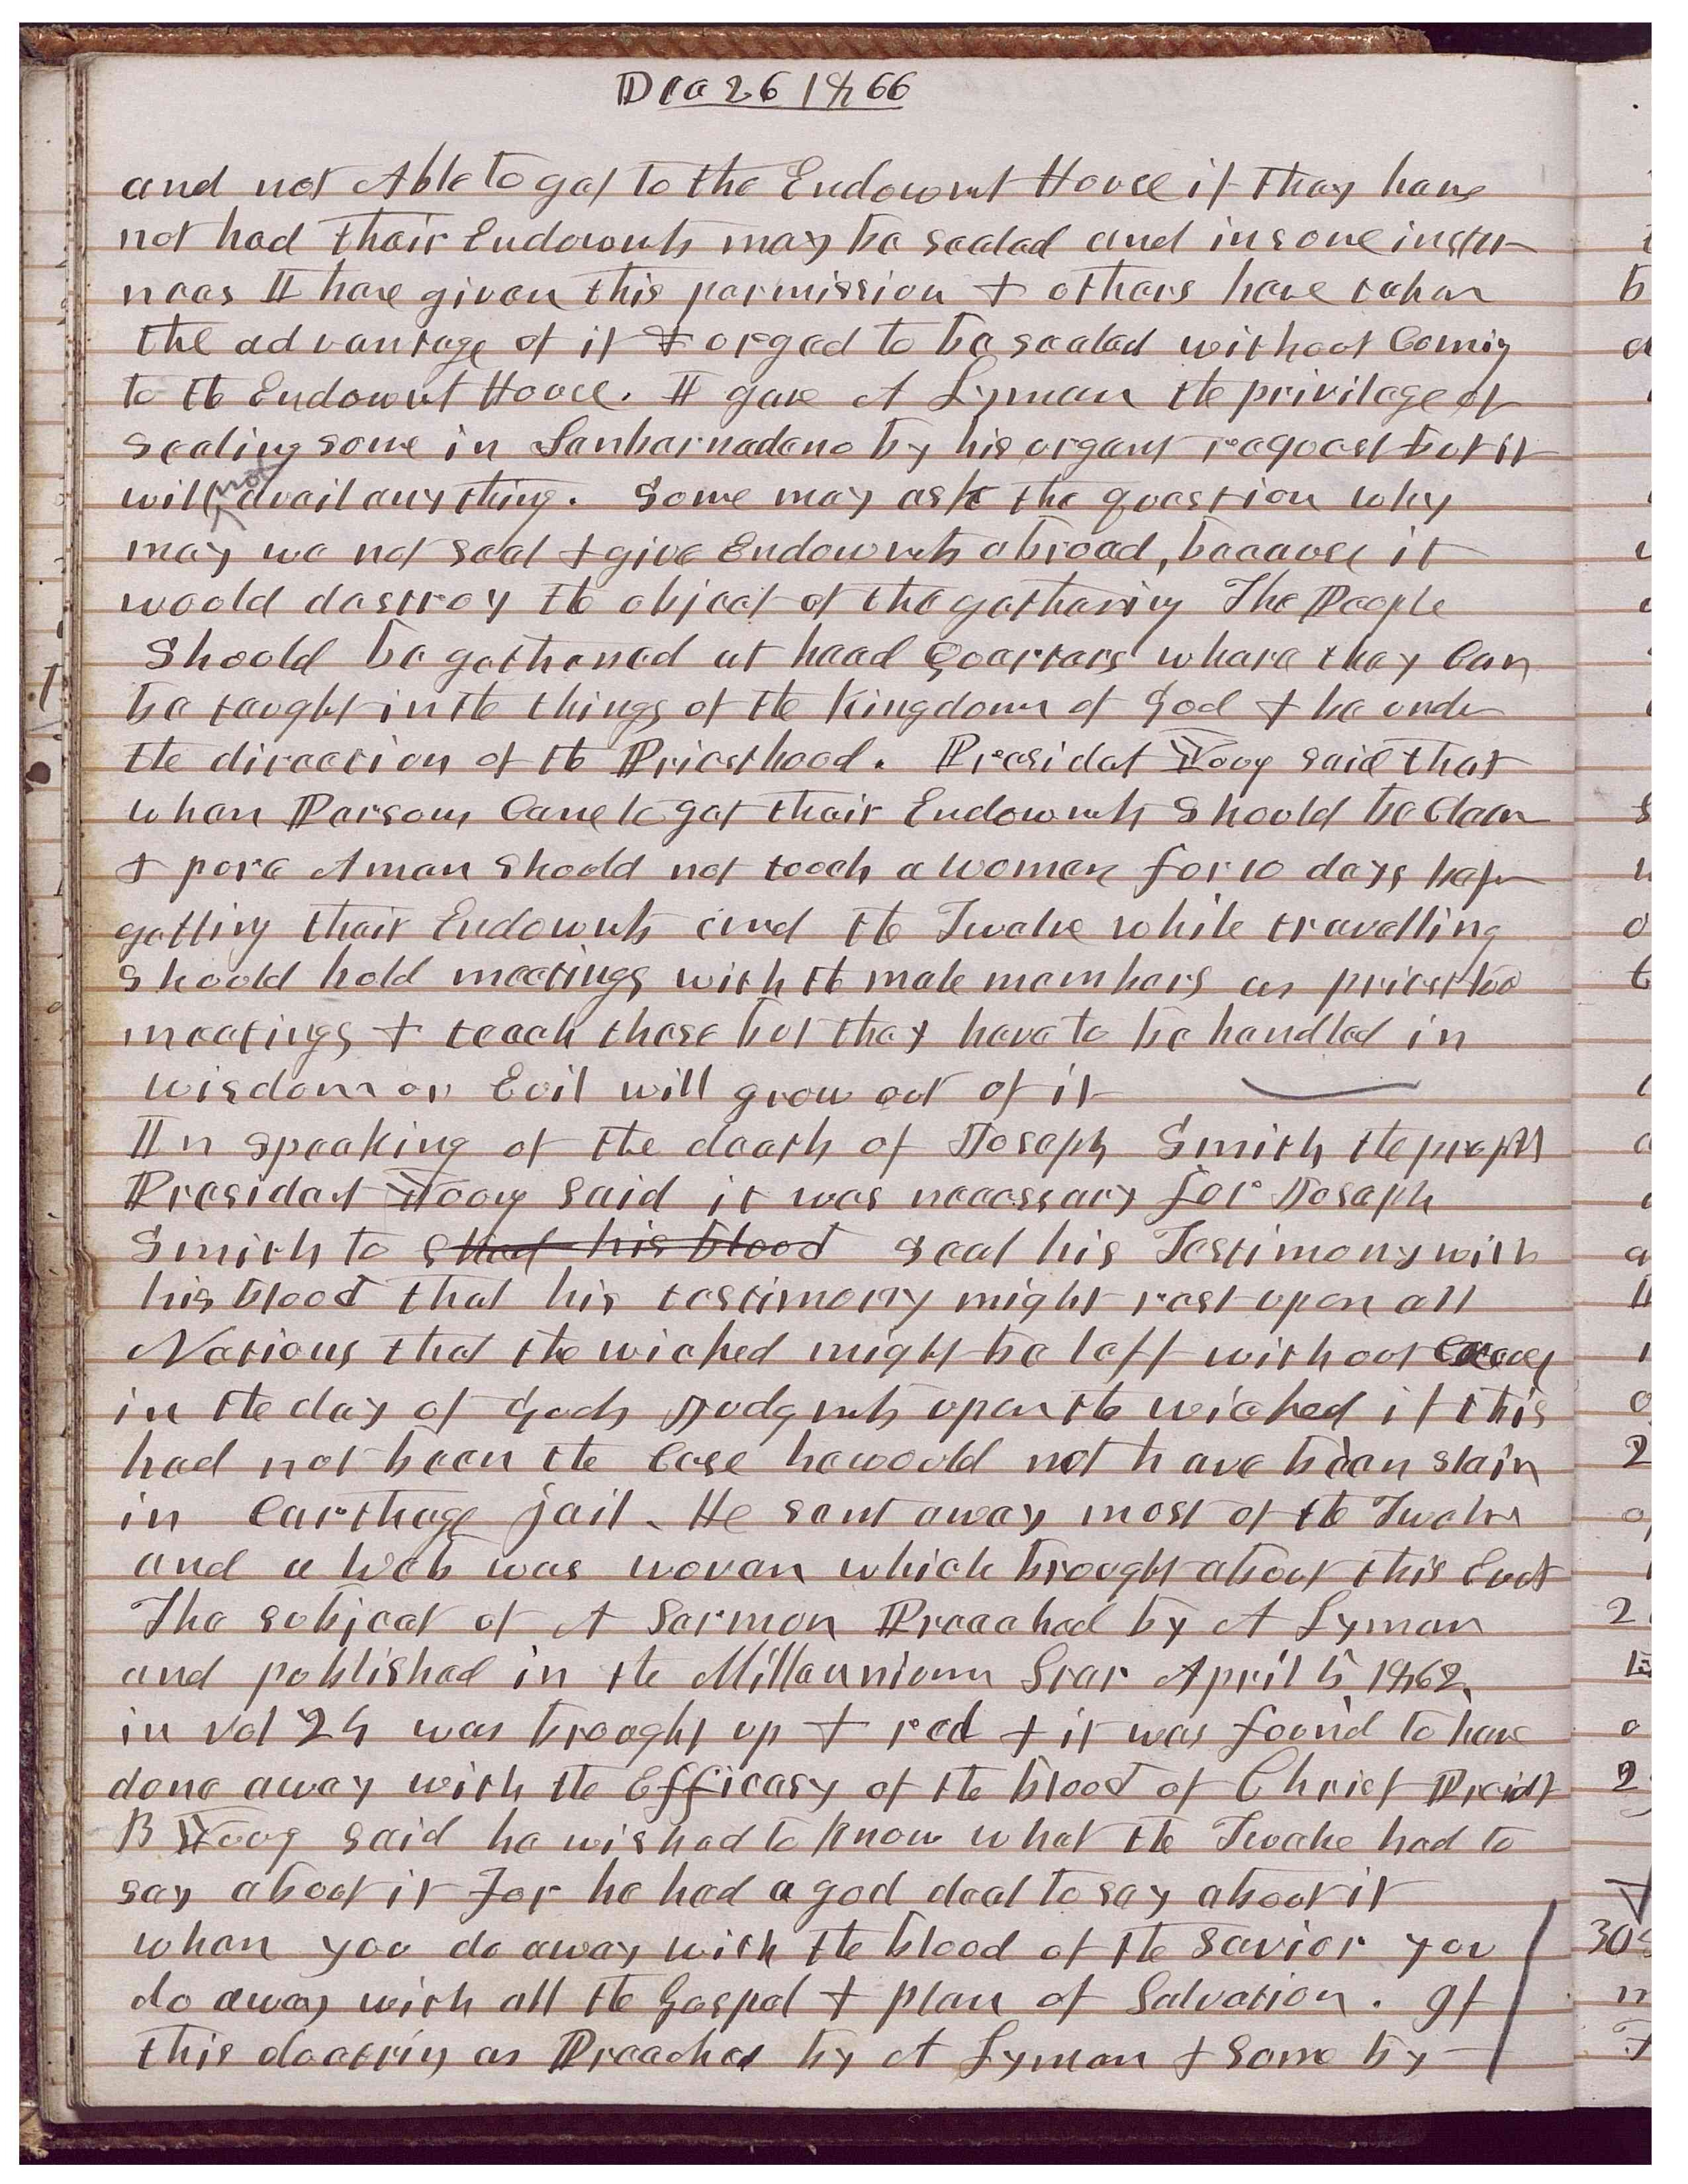 Dec 26 1866
and not Able to get to the Endowmt House if they have
not had their Endowmts may be sealed and in some insta-
nces I have given this permission & others have taken
the advantage of it & urged to be sealed without Coming
to the Endowmt House. I gave A Lyman the privilege of
sealing some in Sanbarnadeno by his urgant request but it
will not avail any thing. Some may ask the question why
may we not seal & give Endowmts abroad, because it
would destroy the object of the gathering The People
Should be gathered at head Quarters where they Can
be taught in the things of the Kingdom of God & be under
the direction of the Priesthood. Presidet Young said that
when Persons Came to get their Endowmts Should be Clean
& pure A man should not touch a woman for 10 days before
getting their Endowmts and the Twelve while travelling
should hold meetings with the male members as priesthood
meetings & teach these but they have to be handled in
wisdom or Evil will grow out of it
In speaking of the death of Joseph Smith the prophet
President Young said it was necessary for Joseph
Smith to shed his blood seal his Testimony with
his blood that his testimony might rest upon all
Nations that the wicked might be left without excuse
in the day of Gods Judgmts upon the wicked if this
had not been the Case he would not have been slain
in Carthage jail. He sent away most of the Twelve
and a Web was woven which brought about this Event
The subject of A Sermon Preached by A Lyman
and published in the Millennium Star April 5 1862
in vol 24 was brought up & red & it was found to have
done away with the Efficasy of the blood of Christ Presidt
B Young said he wished to know what the Twelve had to
say about it For he had a god deal to say about it
when you do away with the blood of the Savior you
do away with all the Gospel & plan of Salvation. If
this doctrin as Preached by A Lyman & some by